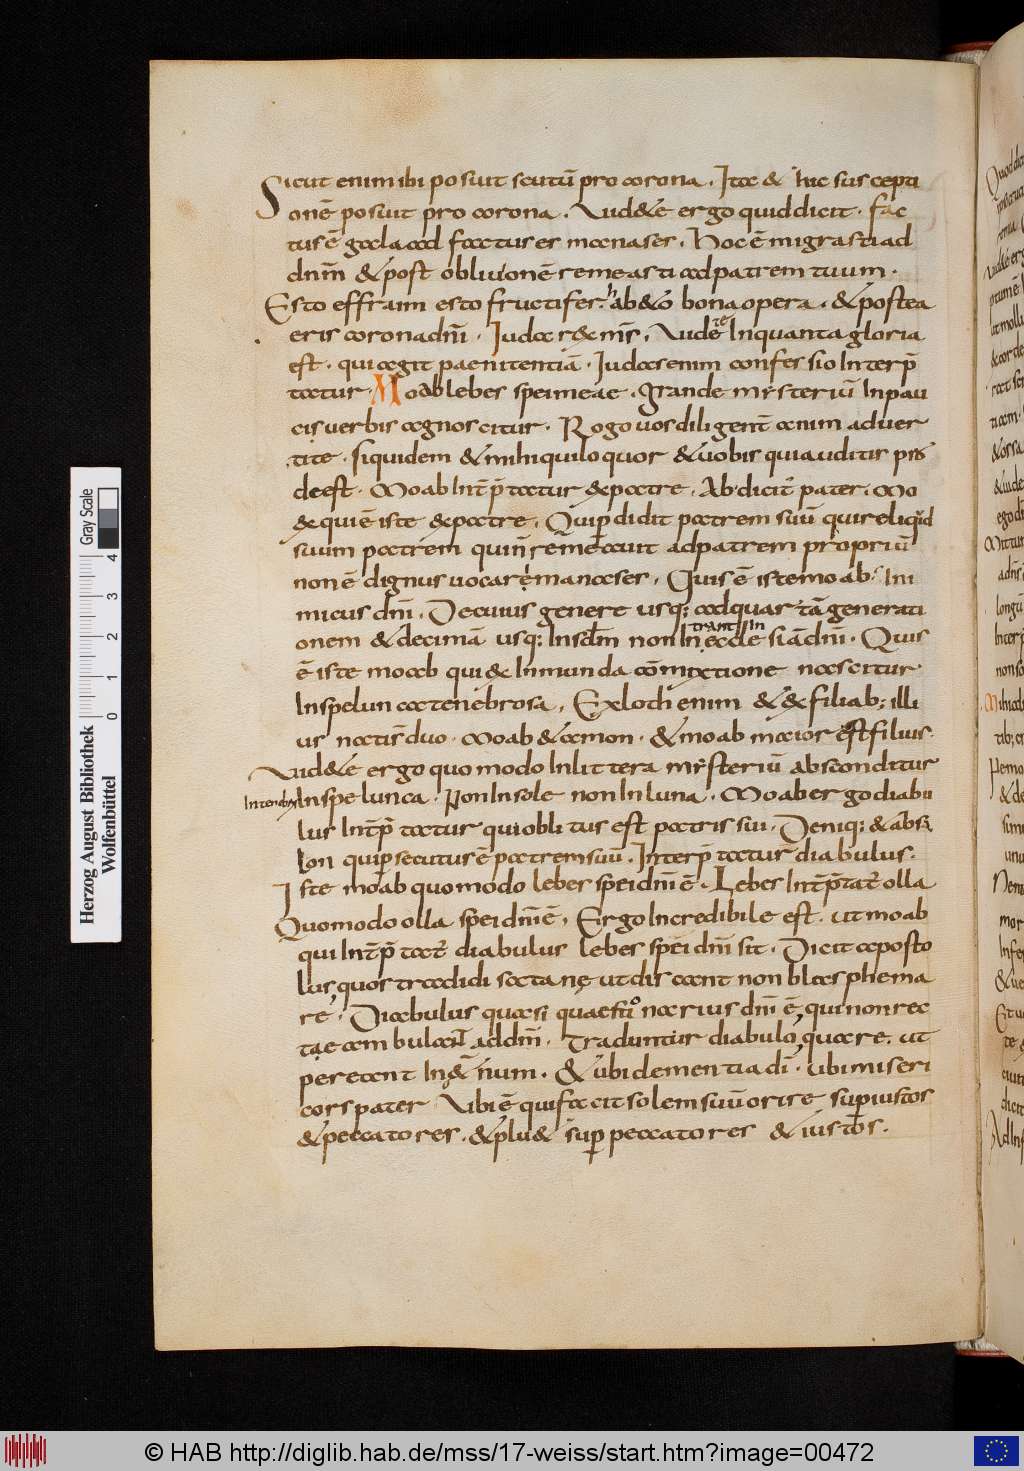 Sicut enim ibi posuit scutū pro corona. Ita & hic suscepti
onē posuit pro corona. Uid&e ergo quid dicit. fac
tus ē galaad factus es manases. Hoc ē migrasti ad
dn̄m & post obliuionē remeasti ad patrem tuum.
Esto effraim esto fructifer. hab&o bona opera. & postea
eris corona dn̄i. Iuda rex m̄s. Uidete In quanta gloria
est. qui agit paenitentiā. Iudas enim confessio Interp̄
tatur. Moab lebes spei meae. Grande mysteriū In pau
cis uerbis agnoscitur. Rogo uos diligent animaduer
tite. siquidem & mihi qui loquor & uobis qui auditis
deest. Moab Int̄p̄tatur ex patre. Ab dicit̄ pater. Mo
ex qui ē iste ex patre. Qui p̄didit patrem suū qui reliquid
suum patrem qui n̄ remeauit ad patrem propriū
non ē dignus uocare manases. Quis ē iste moab. Ini
micus dn̄i. De cuius genere usq; ad quartā generati
onem & decimā usq; In sc̄lm non In
trant In
eccle siā dn̄i. Quis
ē iste moab qui de Inmunda cōmixtione nascitur
In spelunca tenebrosa. Ex loth enim & ex filiab; illi
us nati s̄ duo. Moab & amon. & moab maior est filius.
Uid&e ergo quomodo In littera mysteriū absconditur
In tenebris In spelunca. Non In sole non In luna. Moab ergo diabu
lus Int̄p̄tatur qui oblitus est patris sui. Deniq; & abs
lon qui p̄secutus ē patrem suū. Interp̄tatur diabulus.
Iste moab quomodo lebes spei dn̄i ē. Lebes Int̄p̄tat̄ olla
Quomodo olla spei dn̄i ē. Ergo Incredibile est. ut moab
qui Int̄p̄tat̄ diabulus lebes spei dn̄i sit. Dicit aposto
lus quos tradidi satanę ut discant non blasphema
re. Diabulus quasi quaestionarius dn̄i ē, qui non rec
tae ambulat ad dn̄m. Traduntur diabulo quare. ut
pereant In &̄num. & ubi clementia dī. ubi miseri
cors pater Ubi ē qui facit solem suū orire sup iustos
& peccatores. & plu& sup peccatores & iustos.
Herzog August Bibliothek
Wolfenbüttel
0 1 2 3 4
Gray Scale
© HAB http://diglib.hab.de/mss/17-weiss/start.htm?image=00472